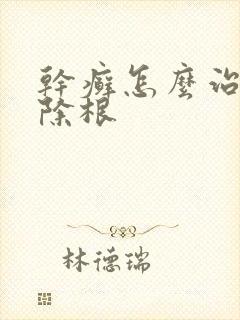 幹癬怎麼治
除根
林德瑞